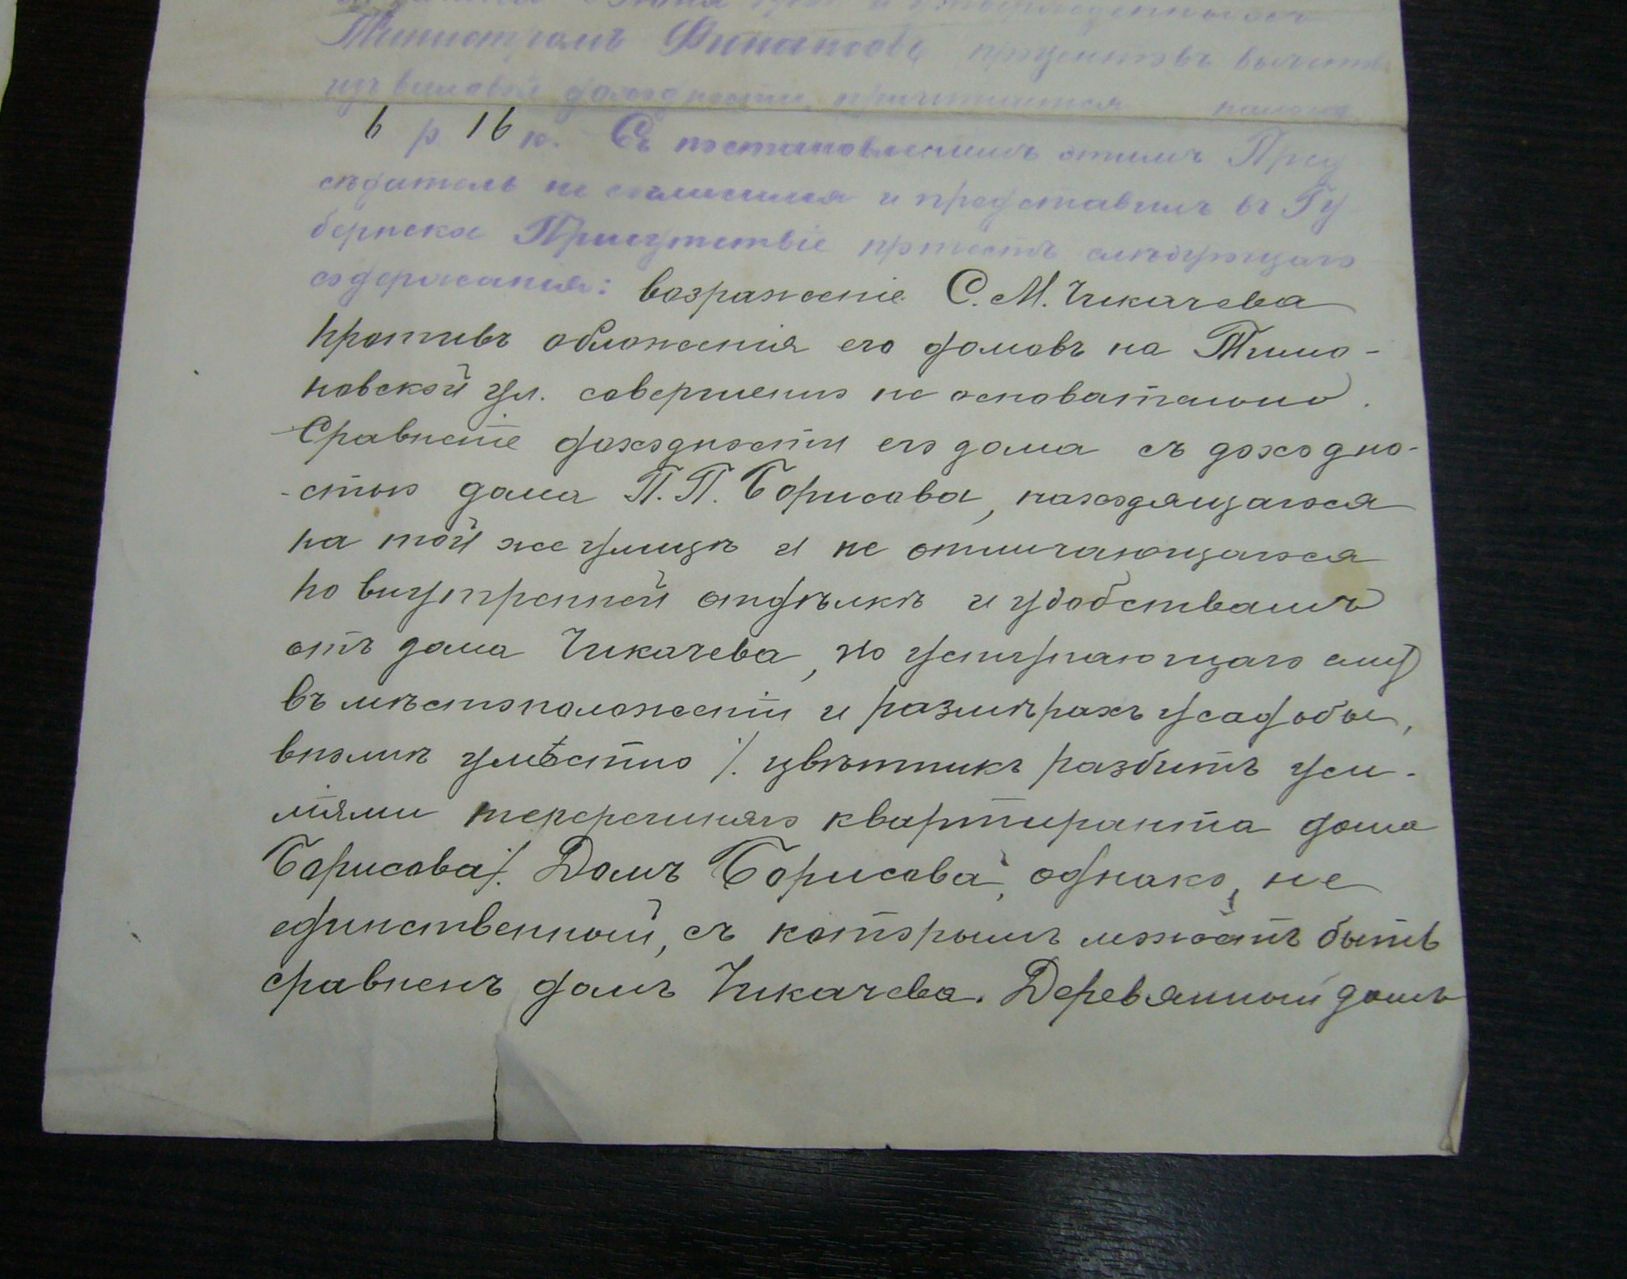 Министромъ Финансовъ процентовъ вычета
изъ валовой доходности, причитается налога
6 р 16 к. Съ постановленіемъ этимъ Пред
сѣдатель не согласился и представилъ въ Гу
бернское Присутствіе протестъ слѣдующаго
содержания: возраженіе С. М. Чикачева
противъ обложенія его домовъ на Тимо-
новской ул. совершенно не основательно.
Сравненіе доходности его дома съ доходно-
-стью дома П. П. Борисова, находящагося
на той же улицѣ и не отличающагося
по внутренней отдѣлкѣ и удобствамъ
отъ дома Чикачева, но уступающаго ему
въ мѣстоположеніи и размѣрахъ усадьбы,
вполнѣ умѣстно /. цвѣтникъ разбитъ уси-
ліями теперешняго квартиранта дома
Борисова/. Домъ Борисова, однако, не
единственный, съ которымъ можетъ быть
сравненъ домъ Чикачева. Деревянный домъ